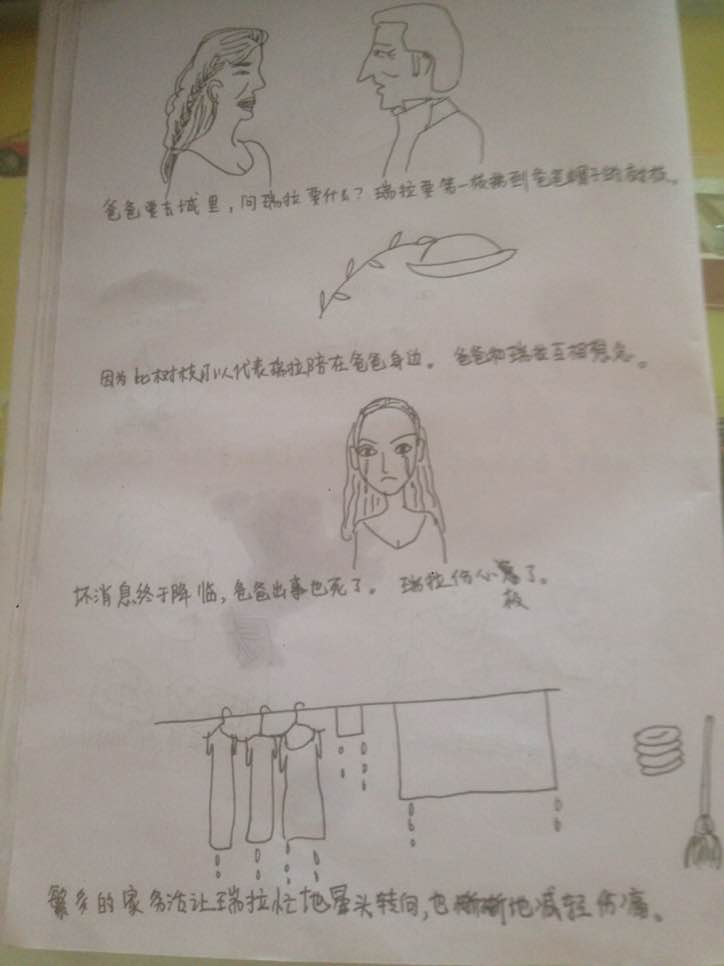 爸爸要去城里，问瑞拉要什么？瑞拉要第一枝拂到爸爸帽子的树枝。
因为此树枝可以代表瑞拉陪在爸爸身边。爸爸和瑞拉互相想念。
坏消息终于降临，爸爸出事也死了。瑞拉伤心极了。
繁多的家务活让瑞拉忙地晕头转向，也渐渐地减轻伤痛。